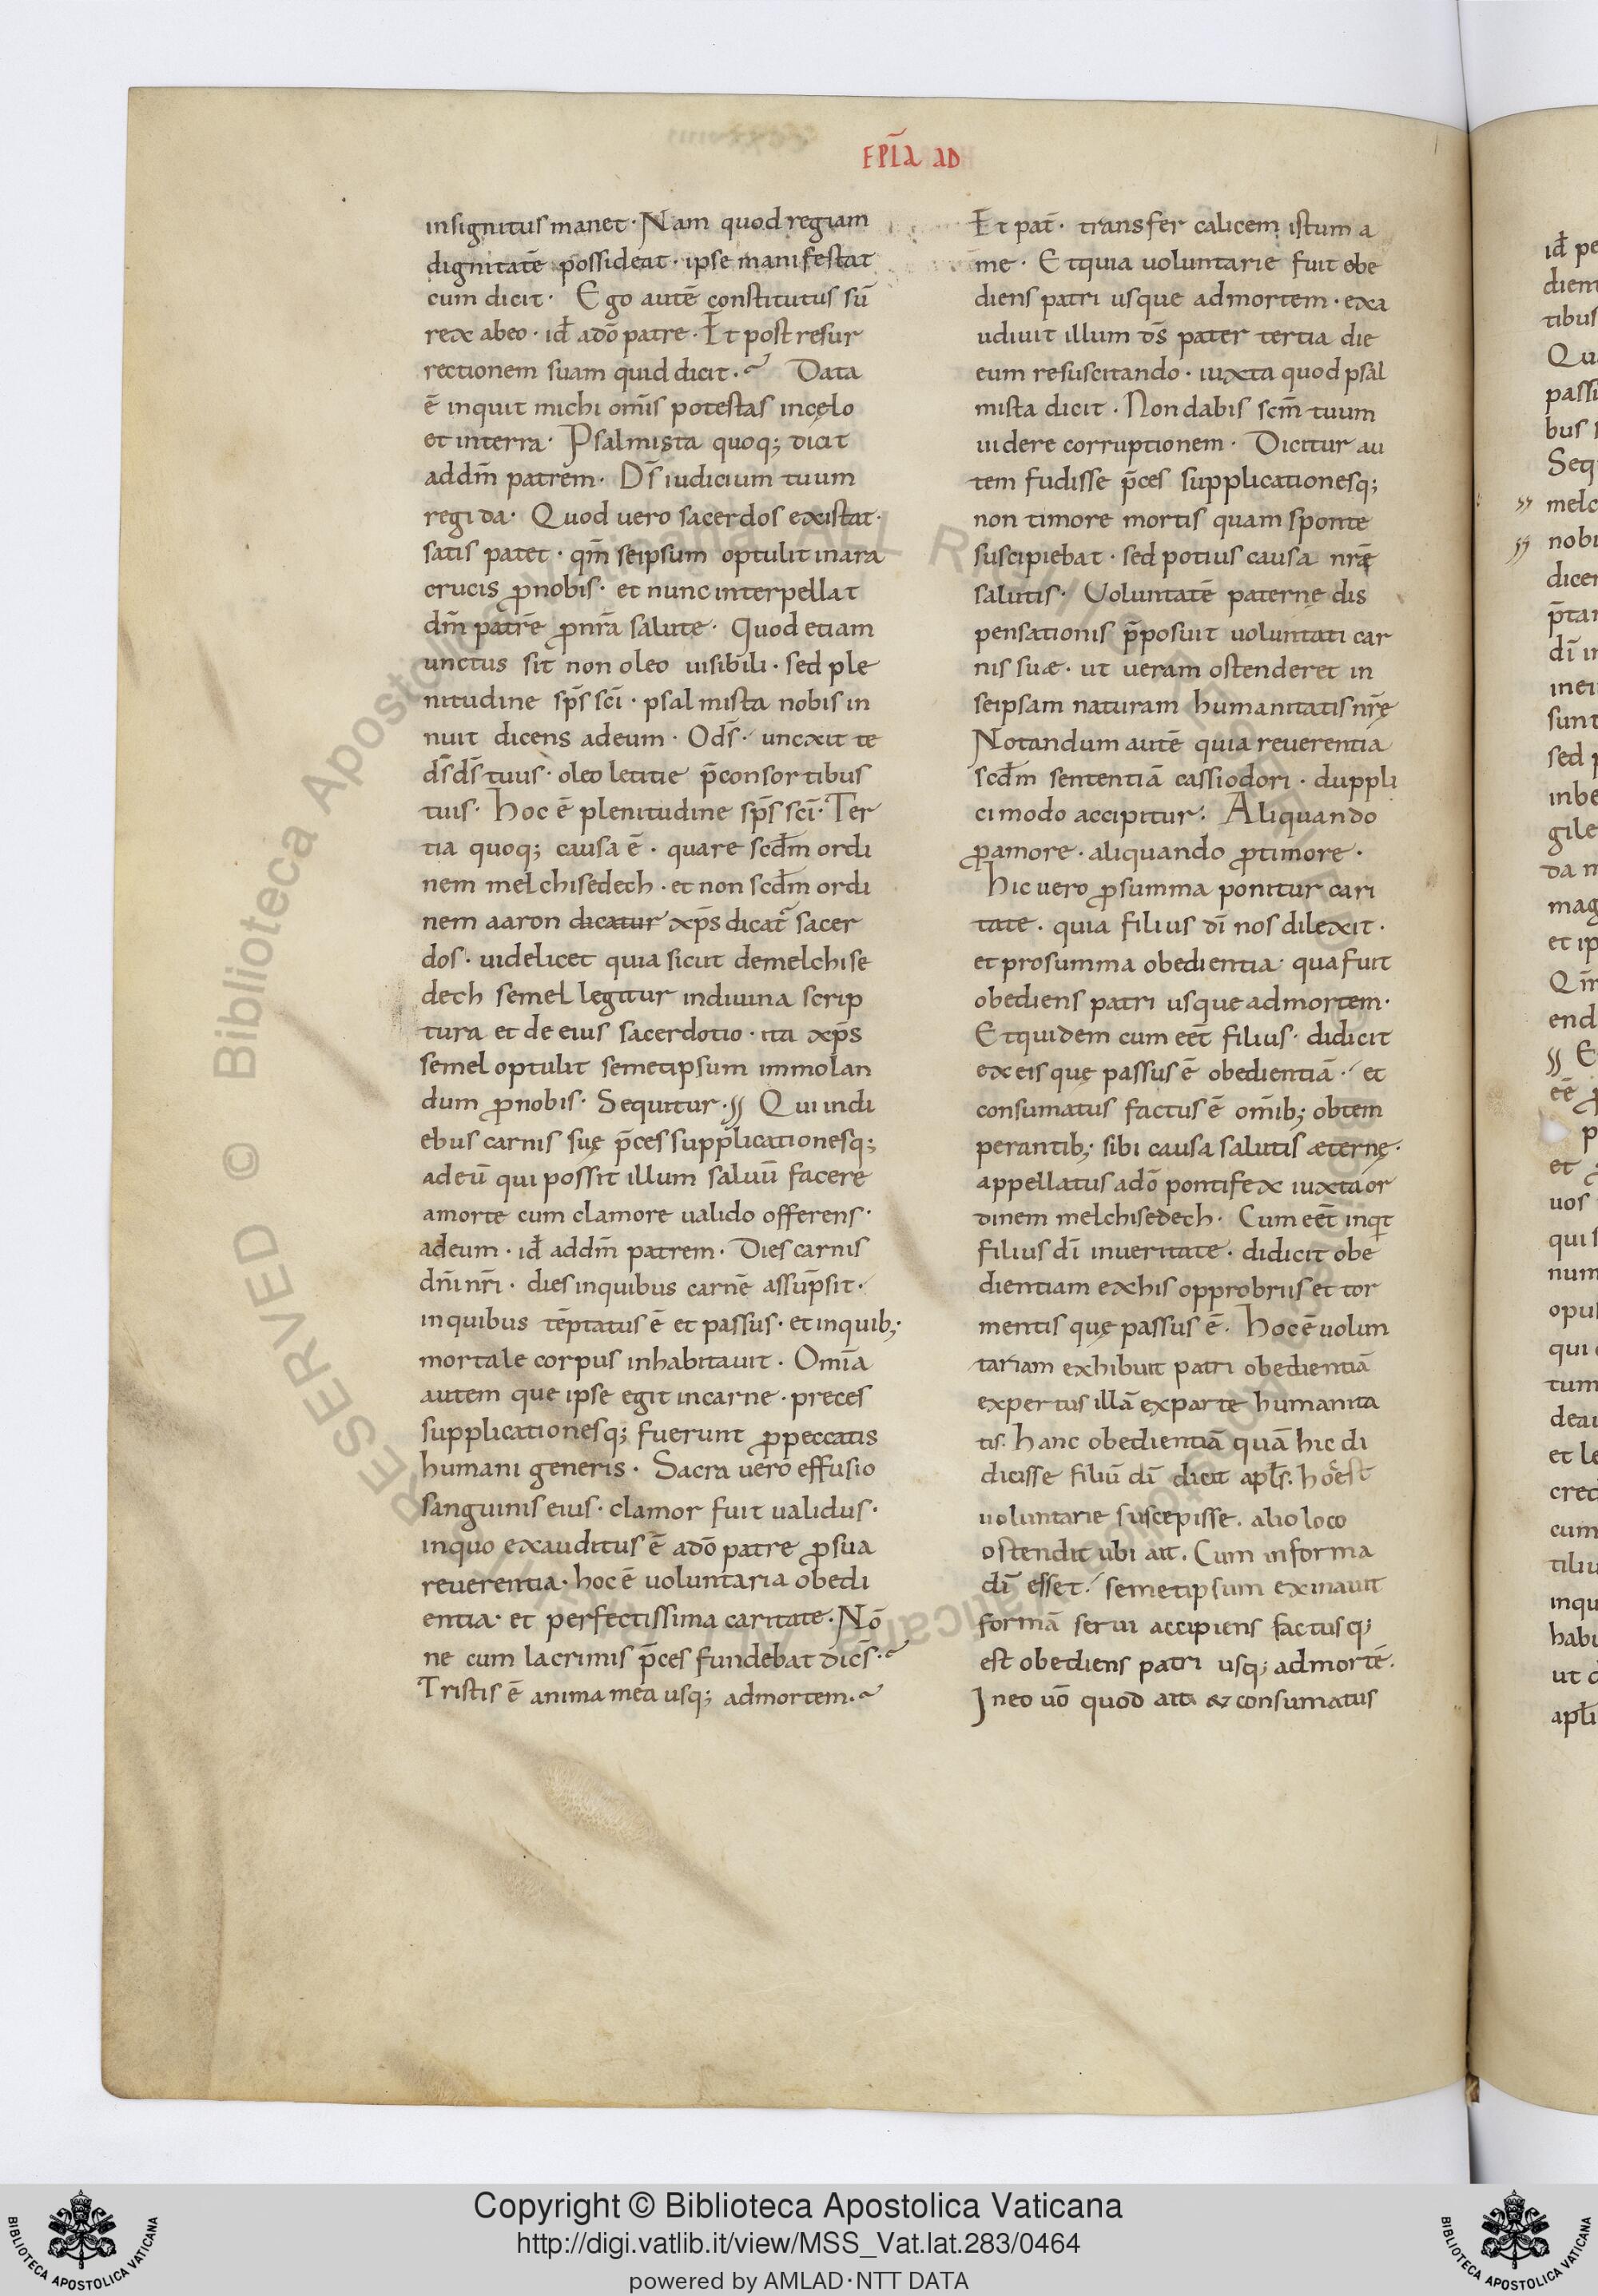 EPL̅A AD
insignitus manet · Nam quod regiam
dignitatē possideat · ipse manifestat
cum dicit · Ego autē constitutus sū
rex abeo · id̄ adō patre · Et post resur
rectionem suam quid dicit · Data
ē inquit michi om̄is potestas incęlo
et interra · Psalmista quoq; dicit
addm̄ patrem · Ds̄ iudicium tuum
regi da · Quod uero sacerdos existat ·
satis patet · qm̄ seipsum optulit inara
crucis ꝓnobis · et nunc interpellat
dm̄ patrē ꝓnrā salute · Quod etiam
unctus sit non oleo uisibili · sed ple
nitudine sp̄s scī · psalmista nobis in
nuit dicens adeum · Ods̄ · unxit te
ds̄ ds̄ tuus · oleo letitie p̄consortibus
tuis · hoc ē plenitudine sp̄s scī · Ter
tia quoq; causa ē · quare scd̄m ordi
nem melchisedech · et non scd̄m ordi
nem aaron dicatur xp̄s dicat̄ sacer
dos · uidelicet quia sicut demelchise
dech semel legitur indiuina scrip
tura et de eius sacerdotio · ita xp̄s
semel optulit semetipsum immolan
dum ꝓnobis · Sequitur · Qui indi
ebus carnis suę p̄ces supplicationesq;
adeū qui possit illum saluū facere
amorte cum clamore ualido offerens ·
adeum · id̄ addm̄ patrem · Dies carnis
dn̄i nr̄i · dies inquibus carnē assūpsit ·
inquibus tēptatus ē et passus · et inquib;
mortale corpus inhabitauit · Om̄ia
autem que ipse egit incarne · preces
supplicationesq; fuerunt ꝓpeccatis
humani generis · Sacra uero effusio
sanguinis eius · clamor fuit ualidus ·
inquo exauditus ē adō patre ꝓsua
reuerentia · hoc ē uoluntaria obedi
entia · et perfectissima caritate · Nō
ne cum lacrimis p̄ces fundebat dics̄ ·
Tristis ē anima mea usq; admortem ·
Et pat̄ · transfer calicem istum a
me · Et quia uoluntarie fuit obe
diens patri usque admortem · exa
udiuit illum ds̄ pater tertia die
eum resuscitando · iuxta quod psal
mista dicit · Non dabis scm̄ tuum
uidere corruptionem · Dicitur au
tem fudisse p̄ces supplicationesq;
non timore mortis quam sponte
suscipiebat · sed potius causa nrę̄
salutis · Voluntatē paterne dis
pensationis p̄posuit uoluntati car
nis suæ · ut ueram ostenderet in
seipsam naturam humanitatis nrę̄
Notandum autē quia reuerentia
scd̄m sententiā cassiodori · duppli
ci modo accipitur · Aliquando
ꝓamore · aliquando ꝓtimore ·
hic uero ꝓsumma ponitur cari
tate · quia filius dī nos dilexit ·
et prosumma obedientia · qua fuit
obediens patri usque admortem ·
Et quidem cum eēt filius · didicit
exeis quę passus ē obedientiā · et
consumatus factus ē om̄ib; obtem
perantib; sibi causa salutis æternę ·
appellatus adō pontifex iuxta or
dinem melchisedech · Cum eēt inq̇t
filius dī inueritate · didicit obe
dientiam exhis opprobriis et tor
mentis quę passus ē · Hoc ē uolun
tariam exhibuit patri obedientiā
expertus illā exparte humanita
tis · hanc obedientiā quā hic di
dicisse filiū dī dicit apl̄s · hoc est
uoluntarie suscepisse · alio loco
ostendit ubi ait · Cum informa
dī esset · semetipsum exinauit
formā serui accipiens factusq;
est obediens patri usq; admortē ·
Ineo uō quod ait · & consumatus
id̄ pe
tibus
bus
melc
nobi
sed p
gile
et ip
end
et
uos
num
et le
cum
habi
Biblioteca Apostolica Vaticana ALL RIGHTS RESERVED ©
Copyright © Biblioteca Apostolica Vaticana
http://digi.vatlib.it/view/MSS_Vat.lat.283/0464
powered by AMLAD·NTT DATA
BIBLIOTECA APOSTOLICA VATICANA
BIBLIOTECA APOSTOLICA VATICANA